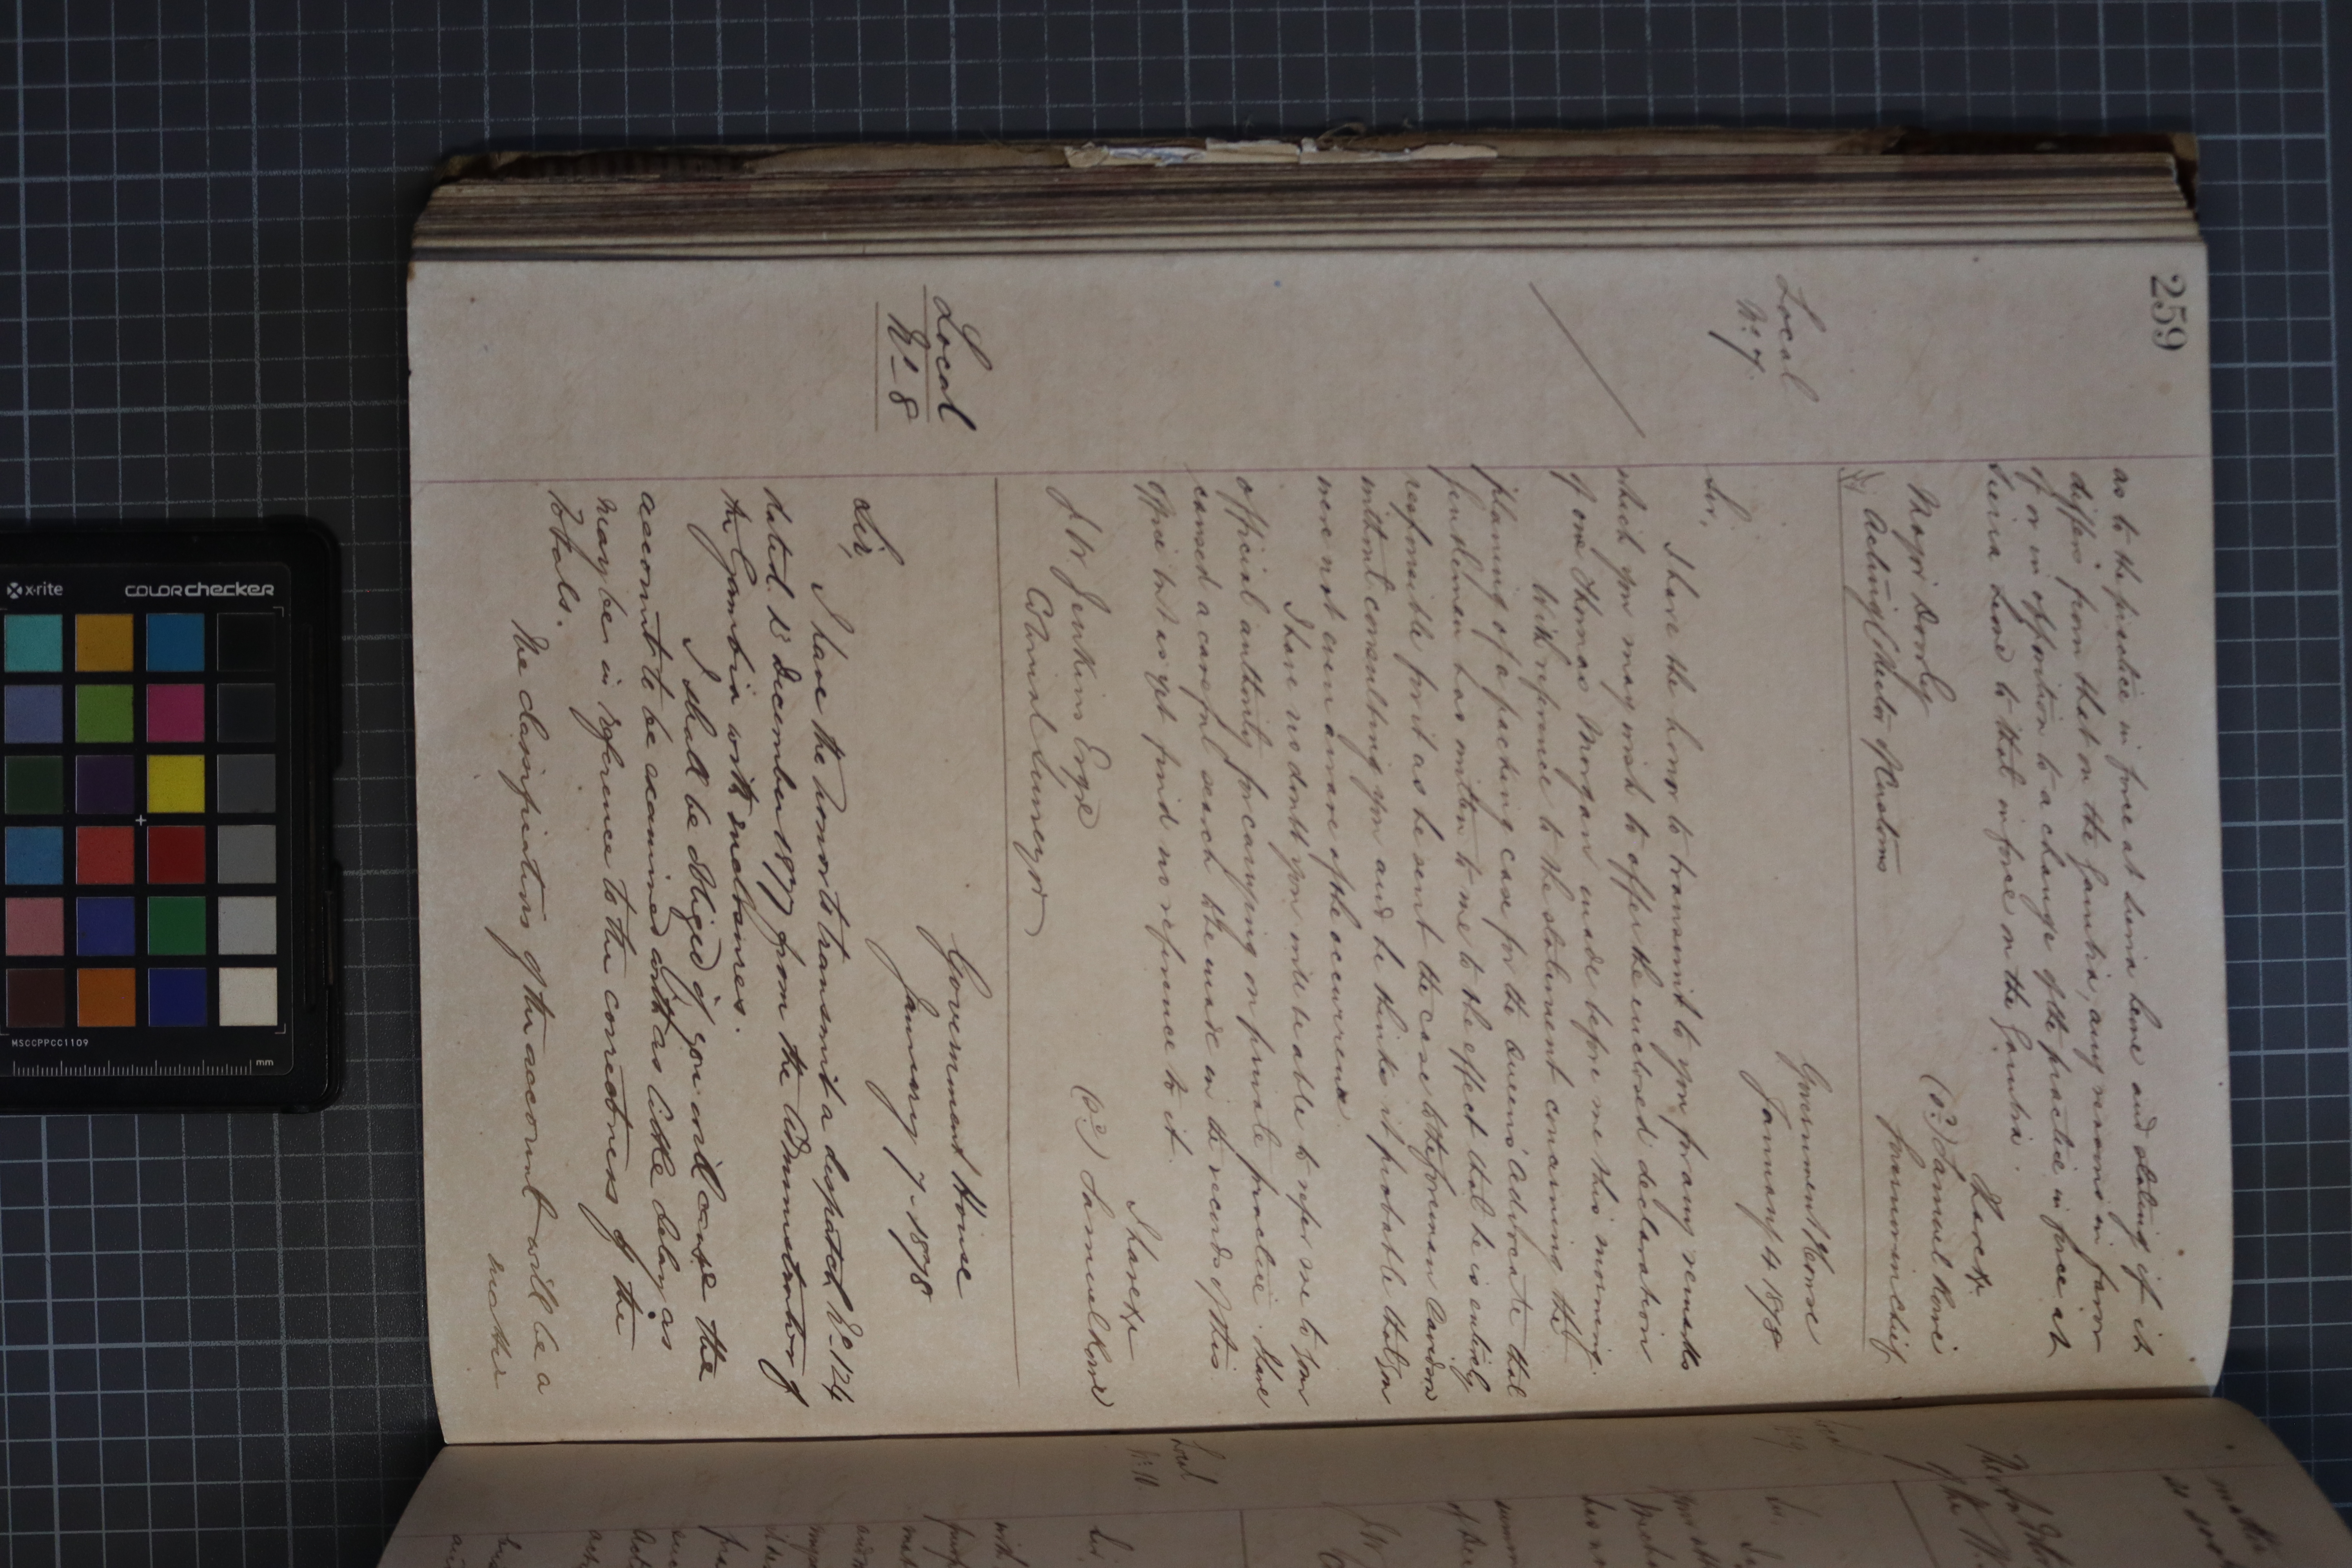 259
as to the practice in force at Sierra Leone and stating if it
differs from that on the Gambia, any reasons in favor
of or in opposition to a change of the practice in force at
Sierra Leone to that in force on the Gambia.
I have &c
(Sd) Samuel Rowe
Governor in chief
Major Dowly
Acting Collector of Customs
Local
No. 7.
Government House
January 4 1878
Sir,
I have the honor to transmit to you for any remarks
which you may wish to offer the enclosed declaration
of one Thomas Morgan made before me this morning.
With reference to the statement concerning the
planing of a packing case for the Queen's Advocate that
Gentleman has written to me to the effect that he is entirely
responsible for it as he sent the case to the foreman
without consulting you and he thinks it probable that you
were not even aware of the occurrence
I have no doubt you will be able to refer me to your
official authority for carrying on private practice. I have
caused a careful search to be made in the records of this
office but as yet find no reference to it.
I have &c
(Sd) Samuel Rowe
J. W. Jenkins Esqre
Colonial Surveyor
Local
No. 8
Government House
January 7. 1878
Sir,
I have the honor to transmit a despatch No. 124
dated 15 December 1877 from the Administrator of
the Gambia with enclosures.
I shall be obliged if you will cause the
account to be examined with as little delay as
may be in reference to the correctness of the
totals.
The classification of the account will be a
matter
Local
No. 10
Sir.